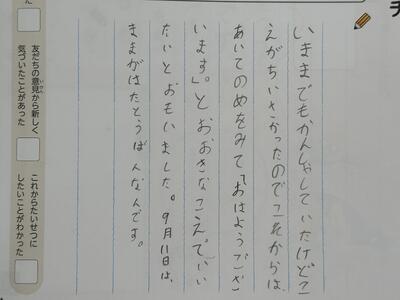 いままでもかんしゃしていたけどこ
えがちいさかったのでこれからは、
あいてのめをみて「おはようござ
います。」とおおきなこえで、いい
たいとおもいました。9月11日は、
ままがはたとうばんなんです。
友だちの意見から新しく
気づいたことがあった
これからたいせつに
したいことがわかった